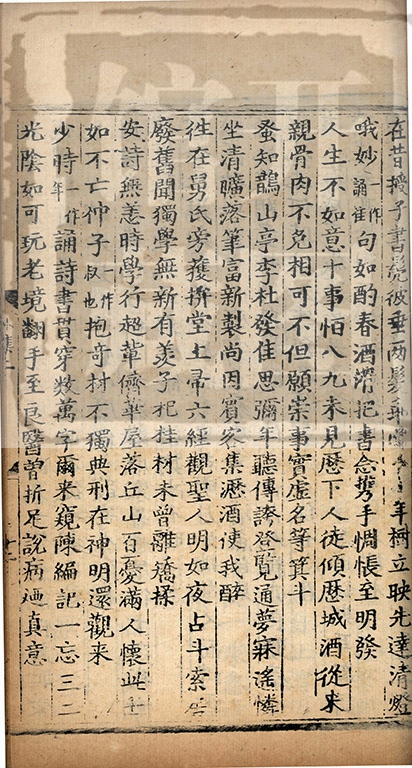 在昔授子書髧彼垂兩髦年樹立映先達清燈
哦妙一作誦佳句如酌春酒滑把書念攜手惆悵至明發
人生不如意十事恒八九未見歷下人徒傾歷城酒從來
親骨肉不免相可不但願崇事實虛名等箕斗
蚤知鵲山亭李杜發佳思彌年聽傳誇登覽通夢寐遙憐
坐清曠落筆富新製尚因賓客集瀝酒使我醉
往在舅氏旁獲拚堂上帚六經觀聖人明如夜占斗索居
廢舊聞獨學無新有羨子杞桂材未曾離矯揉
安詩無恙時學行超輩儕華屋落丘山百憂滿人懷此士
如不亡仲子一作叔也抱奇材不獨典刑在神明還觀來
少時一作年誦詩書貫穿数萬字爾來窺陳編記一忘三二
光陰如可玩老境翻手至良醫曾折足說病廼真意